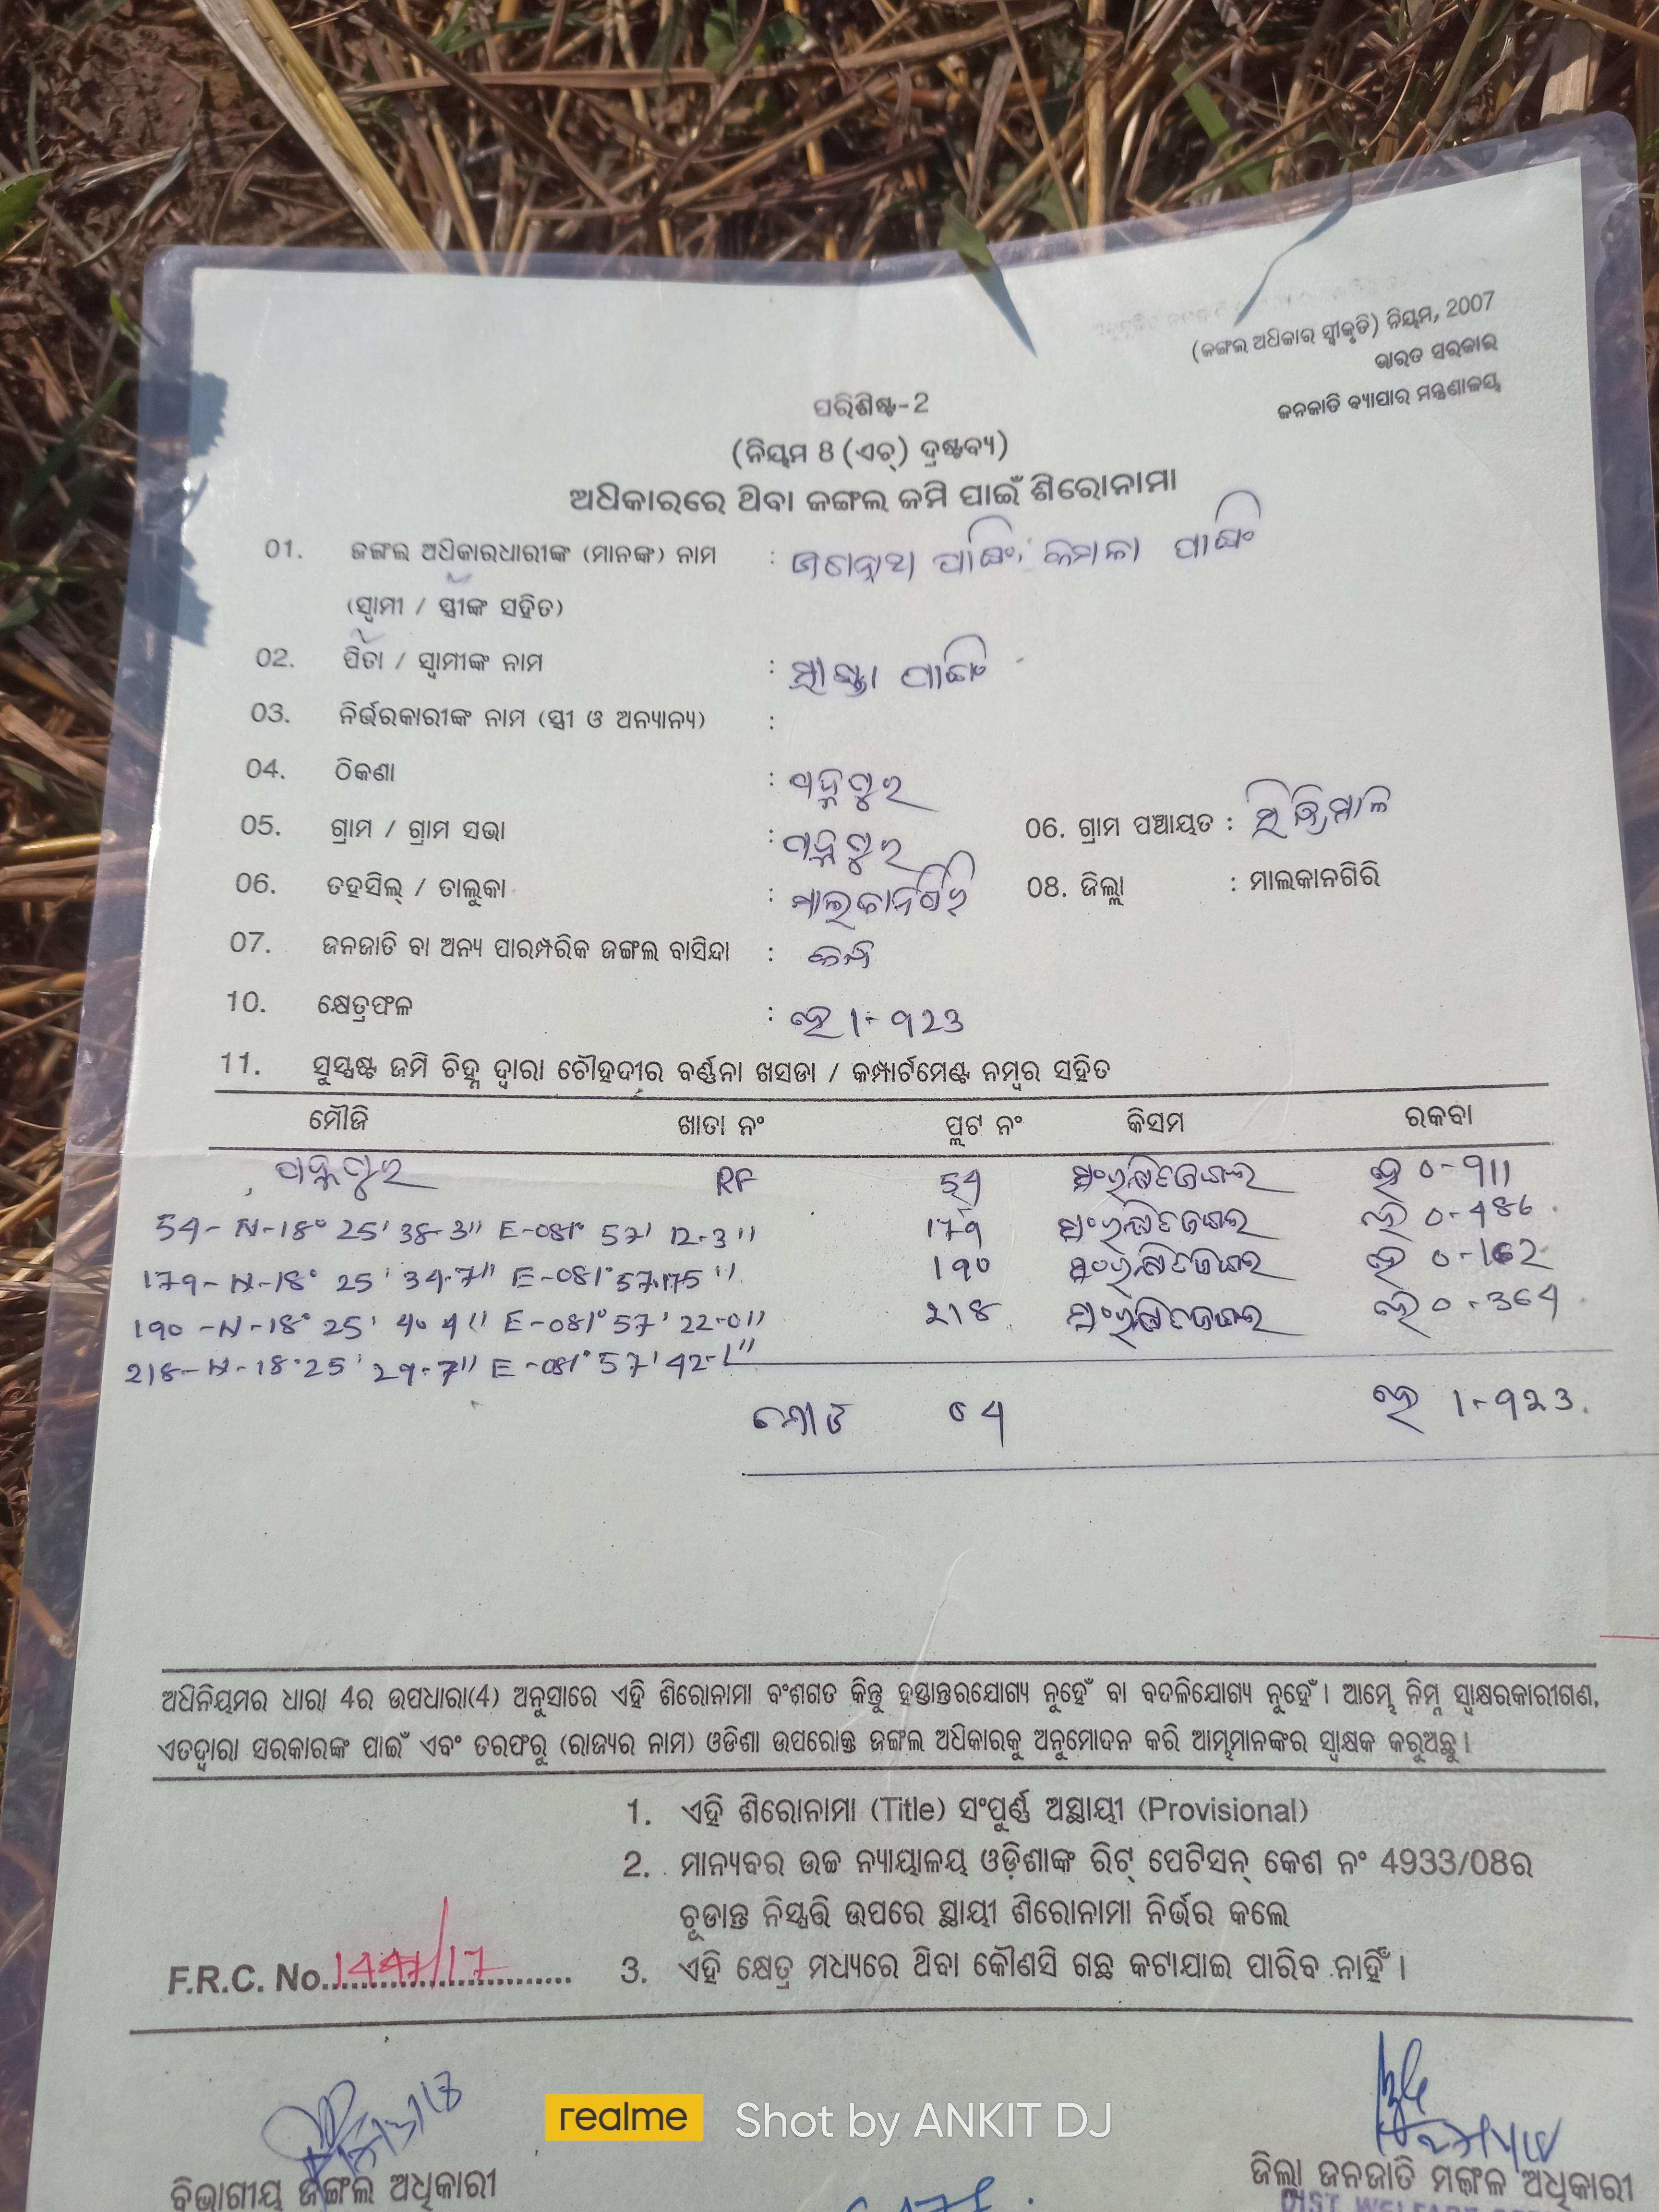 (ଜଙ୍ଗଲ ଅଧିକାର ସ୍ୱୀକୃତି) ନିୟମ, 2007
ଭାରତ ସରକାର
ଜନଜାତି ବ୍ୟାପାର ମନ୍ତ୍ରଣାଳୟ
ପରିଶିଷ୍ଟ-2
(ନିୟମ 8 (ଏଚ୍) ଦ୍ରଷ୍ଟବ୍ୟ)
ଅଧିକାରରେ ଥିବା ଜଙ୍ଗଲ ଜମି ପାଇଁ ଶିରୋନାମା
01. ଜଙ୍ଗଲ ଅଧିକାରଧାରୀଙ୍କ (ମାନଙ୍କ) ନାମ : ଜଗନ୍ନାଥ ପାଙ୍ଗି, କମଳା ପାଙ୍ଗି
(ସ୍ୱାମୀ / ସ୍ତ୍ରୀଙ୍କ ସହିତ)
02. ପିତା / ସ୍ୱାମୀଙ୍କ ନାମ : ପାଙ୍ଗି
03. ନିର୍ଭରକାରୀଙ୍କ ନାମ (ସ୍ତ୍ରୀ ଓ ଅନ୍ୟାନ୍ୟ) :
04. ଠିକଣା :
05. ଗ୍ରାମ / ଗ୍ରାମ ସଭା : 06. ଗ୍ରାମ ପଞ୍ଚାୟତ :
06. ତହସିଲ୍ / ତାଲୁକା : ମାଲକାନଗିରି 08. ଜିଲ୍ଲା : ମାଲକାନଗିରି
07. ଜନଜାତି ବା ଅନ୍ୟ ପାରମ୍ପରିକ ଜଙ୍ଗଲ ବାସିନ୍ଦା :
10. କ୍ଷେତ୍ରଫଳ : ହେ 1-923
11. ସୁସ୍ପଷ୍ଟ ଜମି ଚିହ୍ନ ଦ୍ୱାରା ଚୌହଦୀର ବର୍ଣ୍ଣନା ଖସଡା / କମ୍ପାର୍ଟମେଣ୍ଟ ନମ୍ବର ସହିତ
ମୌଜି ଖାତା ନଂ ପ୍ଲଟ ନଂ କିସମ ରକବା
RF 54 ସଂରକ୍ଷିତ ଜଙ୍ଗଲ ହେ 0-911
54- N-18° 25' 38-3" E-081° 57' 12-3" 179 ସଂରକ୍ଷିତ ଜଙ୍ଗଲ ହେ 0-486
179-N-18° 25' 34.7" E-081° 57.17.5" 190 ସଂରକ୍ଷିତ ଜଙ୍ଗଲ ହେ 0-162
190-N-18° 25' 40 4" E-081° 57' 22-0" 218 ସଂରକ୍ଷିତ ଜଙ୍ଗଲ ହେ 0-364
218-N-18° 25' 29-7" E-081° 57' 42-1"
ମୋଟ 04 ହେ 1-923
ଅଧିନିୟମର ଧାରା 4ର ଉପଧାରା(4) ଅନୁସାରେ ଏହି ଶିରୋନାମା ବଂଶଗତ କିନ୍ତୁ ହସ୍ତାନ୍ତରଯୋଗ୍ୟ ନୁହେଁ ବା ବଦଳିଯୋଗ୍ୟ ନୁହେଁ। ଆମ୍ଭେ ନିମ୍ନ ସ୍ୱାକ୍ଷରକାରୀଗଣ,
ଏତଦ୍ୱାରା ସରକାରଙ୍କ ପାଇଁ ଏବଂ ତରଫରୁ (ରାଜ୍ୟର ନାମ) ଓଡିଶା ଉପରୋକ୍ତ ଜଙ୍ଗଲ ଅଧିକାରକୁ ଅନୁମୋଦନ କରି ଆମ୍ଭମାନଙ୍କର ସ୍ୱାକ୍ଷକ କରୁଅଛୁ।
1. ଏହି ଶିରୋନାମା (Title) ସଂପୁର୍ଣ୍ଣ ଅସ୍ଥାୟୀ (Provisional)
2. ମାନ୍ୟବର ଉଚ୍ଚ ନ୍ୟାୟାଳୟ ଓଡ଼ିଶାଙ୍କ ରିଟ୍ ପେଟିସନ୍ କେଶ ନଂ 4933/08ର
ଚୂଡାନ୍ତ ନିସ୍ପତ୍ତି ଉପରେ ସ୍ଥାୟୀ ଶିରୋନାମା ନିର୍ଭର କଲେ
F.R.C. No. 1447/17 3. ଏହି କ୍ଷେତ୍ର ମଧ୍ୟରେ ଥିବା କୌଣସି ଗଛ କଟାଯାଇ ପାରିବ ନାହିଁ।
realme Shot by ANKIT DJ
ବିଭାଗୀୟ ଜଙ୍ଗଲ ଅଧିକାରୀ ଜିଲ୍ଲା ଜନଜାତି ମଙ୍ଗଳ ଅଧିକାରୀ
DIST WELFARE